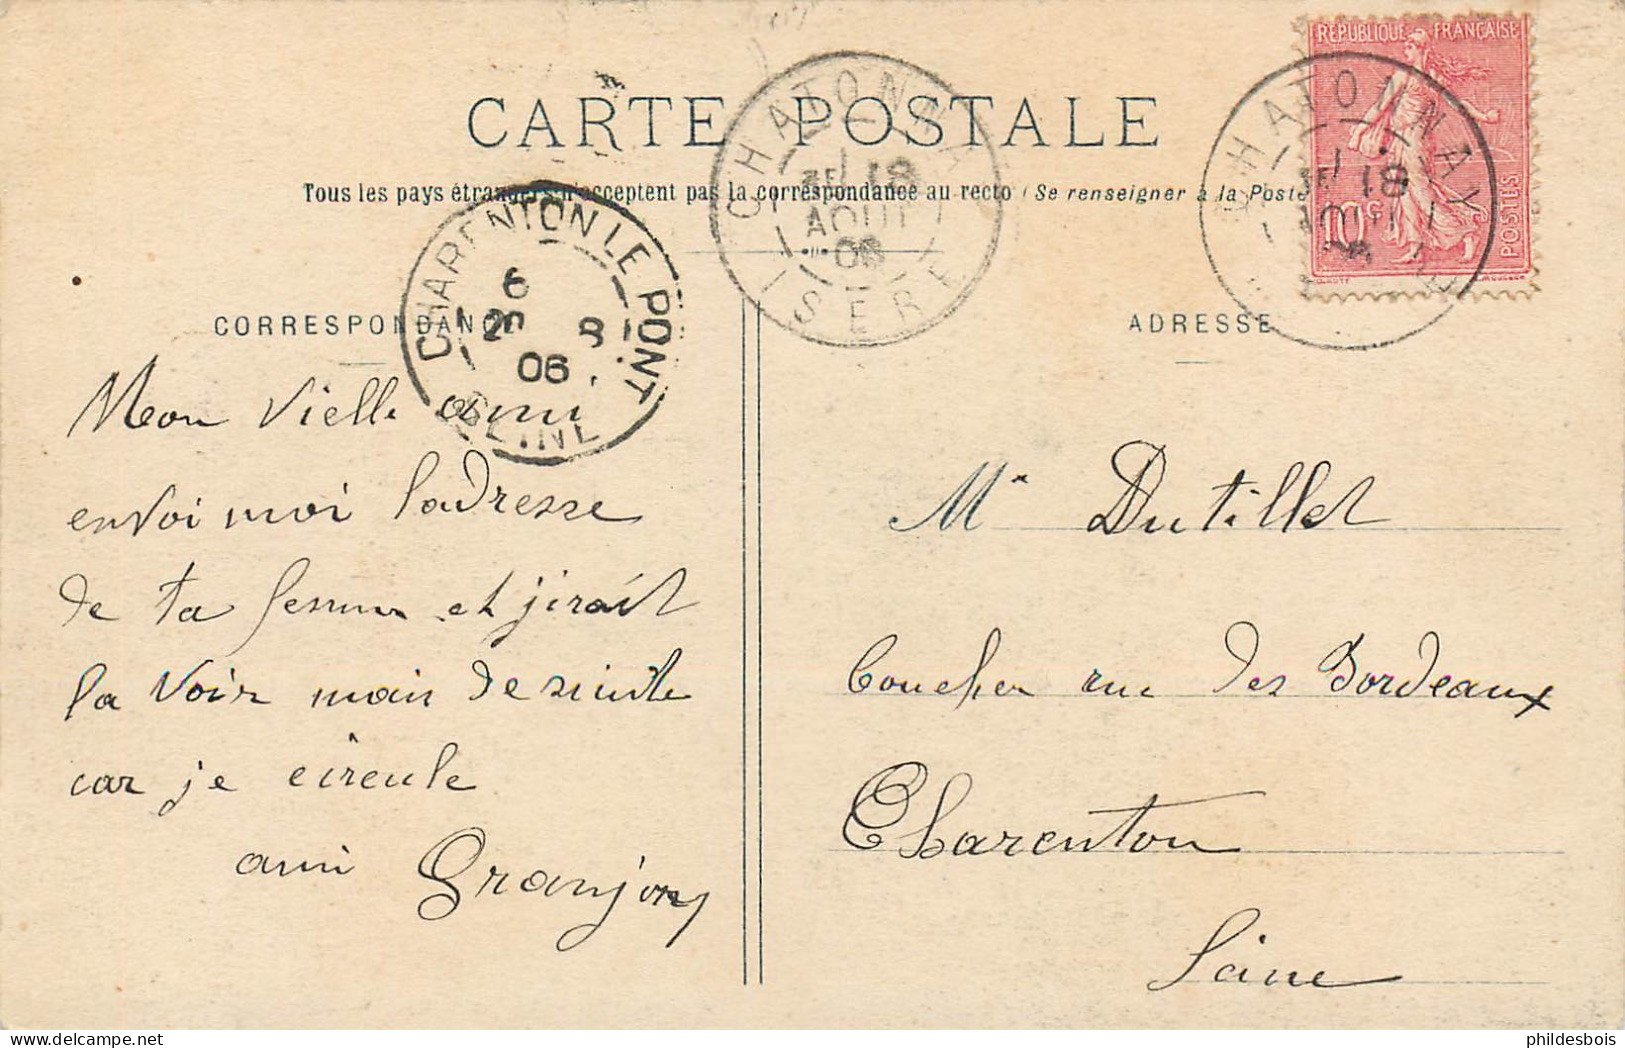 RÉPUBLIQUE FRANÇAISE
10c POSTES
CARTE POSTALE
Tous les pays étrangers n'acceptent pas la correspondance au recto (Se renseigner à la Poste
CHATONNAY
18
AOUT
06
ISERE
CHATONNAY
18
AOUT
CHARENTON LE PONT
2 8
06
SEINE
CORRESPONDANCE
ADRESSE
Mon vielle ami
envoi moi ladresse
de ta femme et jirait
la voir mais de suite
car je circule
ami Granjon
Mr Dutillet
Coucher rue des Bordeaux
Charenton
Seine
phildesbois